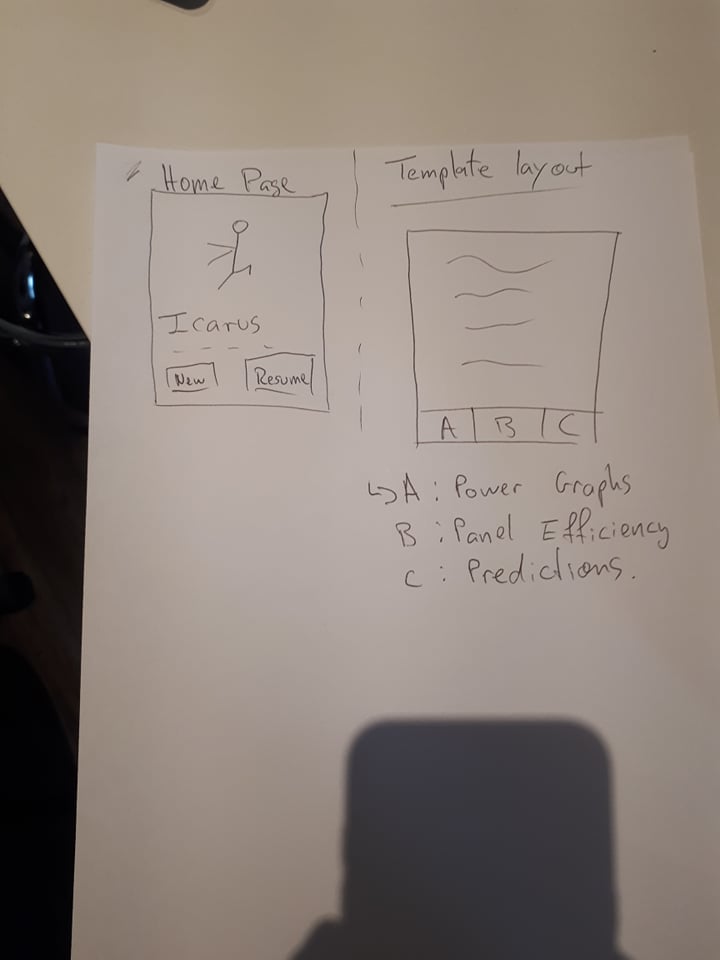 Home Page
Icarus
New
Resume
Template layout
A B C
A : Power Graphs
B : Panel Efficiency
C : Predictions.